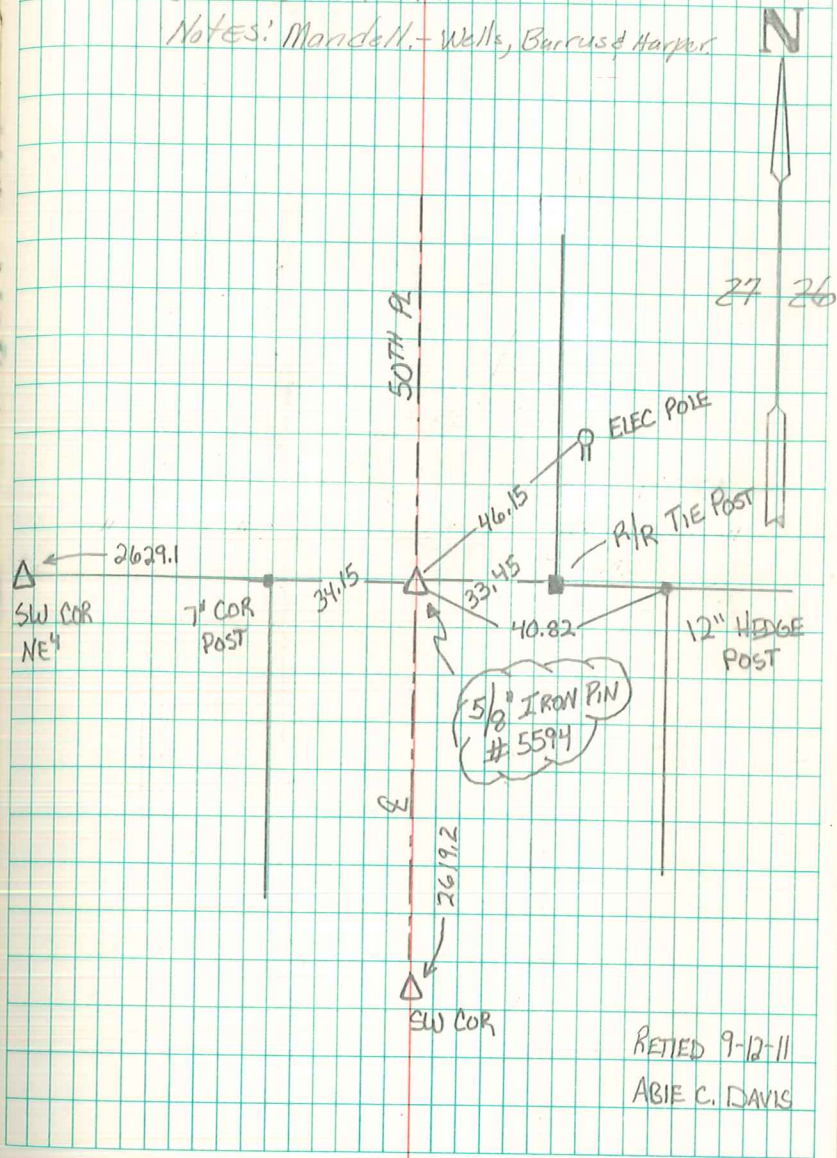 Notes: Mandell.- Wells, Barrus & Harper.
N
27 26
50TH PL
ELEC POLE
46.15
R/R TIE POST
2629.1
34.15
33.45
SW COR
NE4
7" COR
POST
40.82
12" HEDGE
POST
5/8" IRON PIN
# 5594
℄
2619.2
SW COR
RETIED 9-12-11
ABIE C. DAVIS